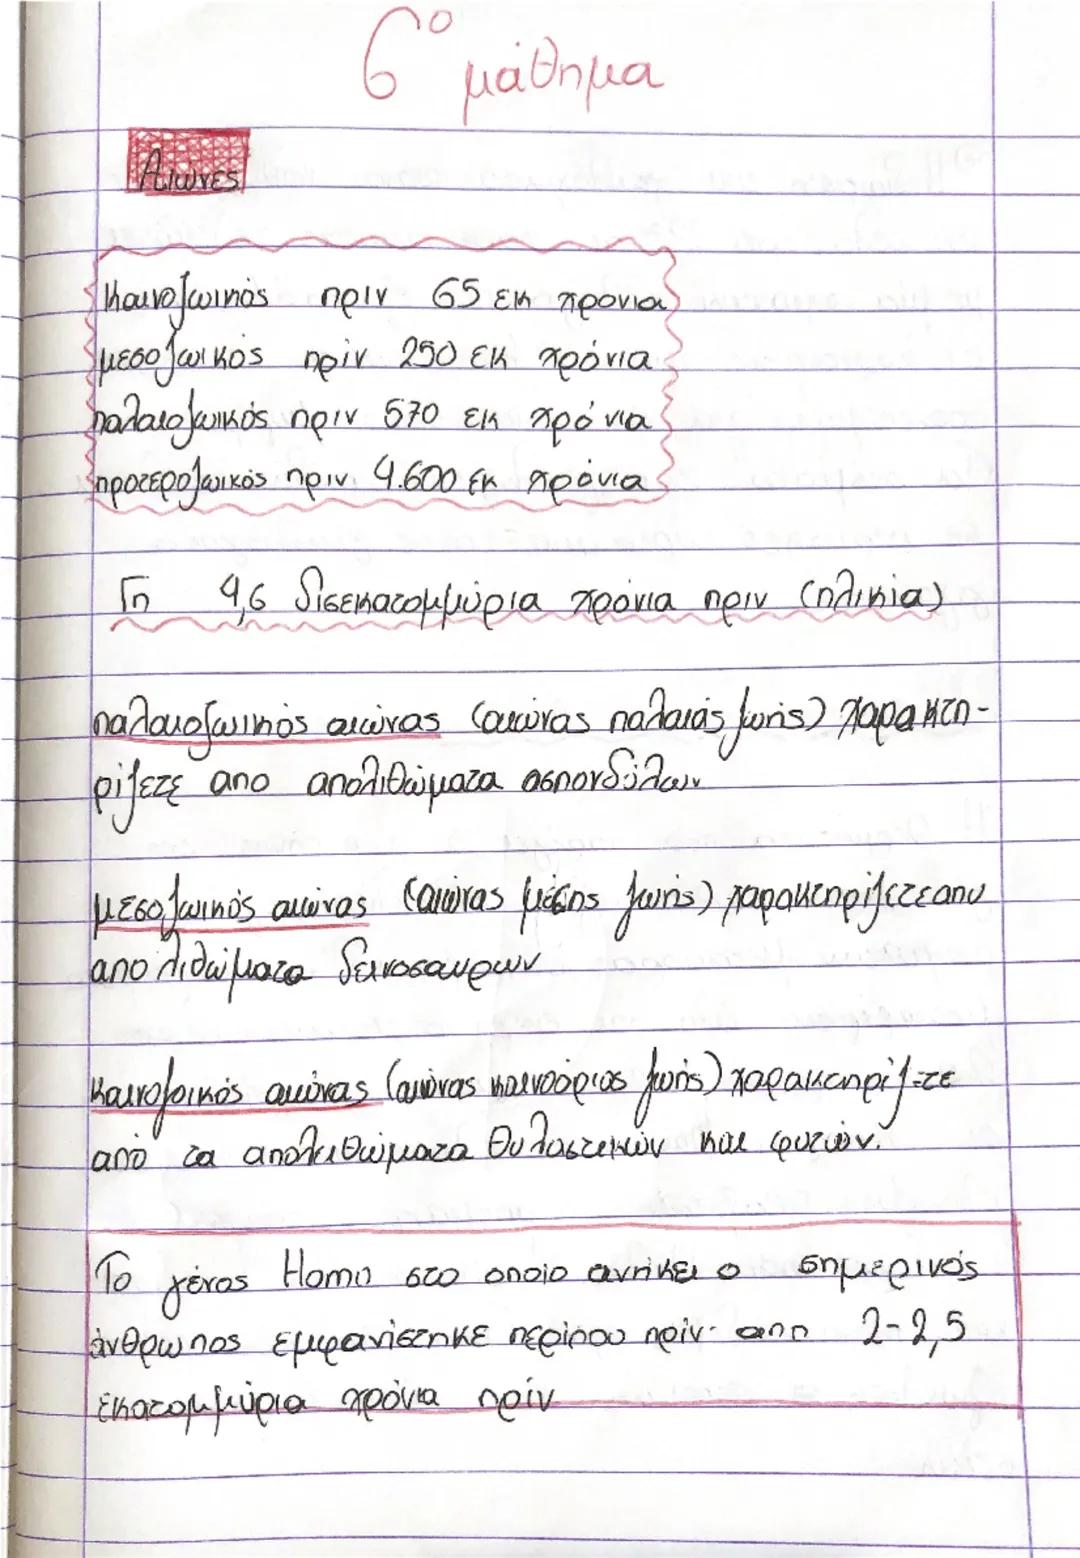 6º μάθημα
Αιώνες
Καινοζωικός πριν 65 εκ χρονια
μεσοζωικός πρίν 250 εκ χρόνια
παλαιοζωικός πριν 570 εκ χρόνια
προτεροζωικός πριν 4.600 εκ χρόνια
Γη 4,6 δισεκατομμύρια χρόνια πριν (ηλικία)
παλαιοζωικός αιώνας (αιώνας παλαιάς ζωής) χαρακτη-
ρίζετε απο απολιθώματα ασπονδύλων
μεσοζωικός αιώνας (αιώνας μέσης ζωής) χαρακτηρίζετε απο
απολιθώματα δεινοσαυρων
καινοζοικός αιώνας (αιώνας καινούριος ζωής) χαρακτηρίζετε
από τα απολιθώματα θυλαστικών και φυτών.
Το γένος Homo στο οποίο ανήκει ο σημερινός
άνθρωπος εμφανίστηκε περίπου πρίν απο 2-2,5
εκατομμύρια χρόνια πρίν